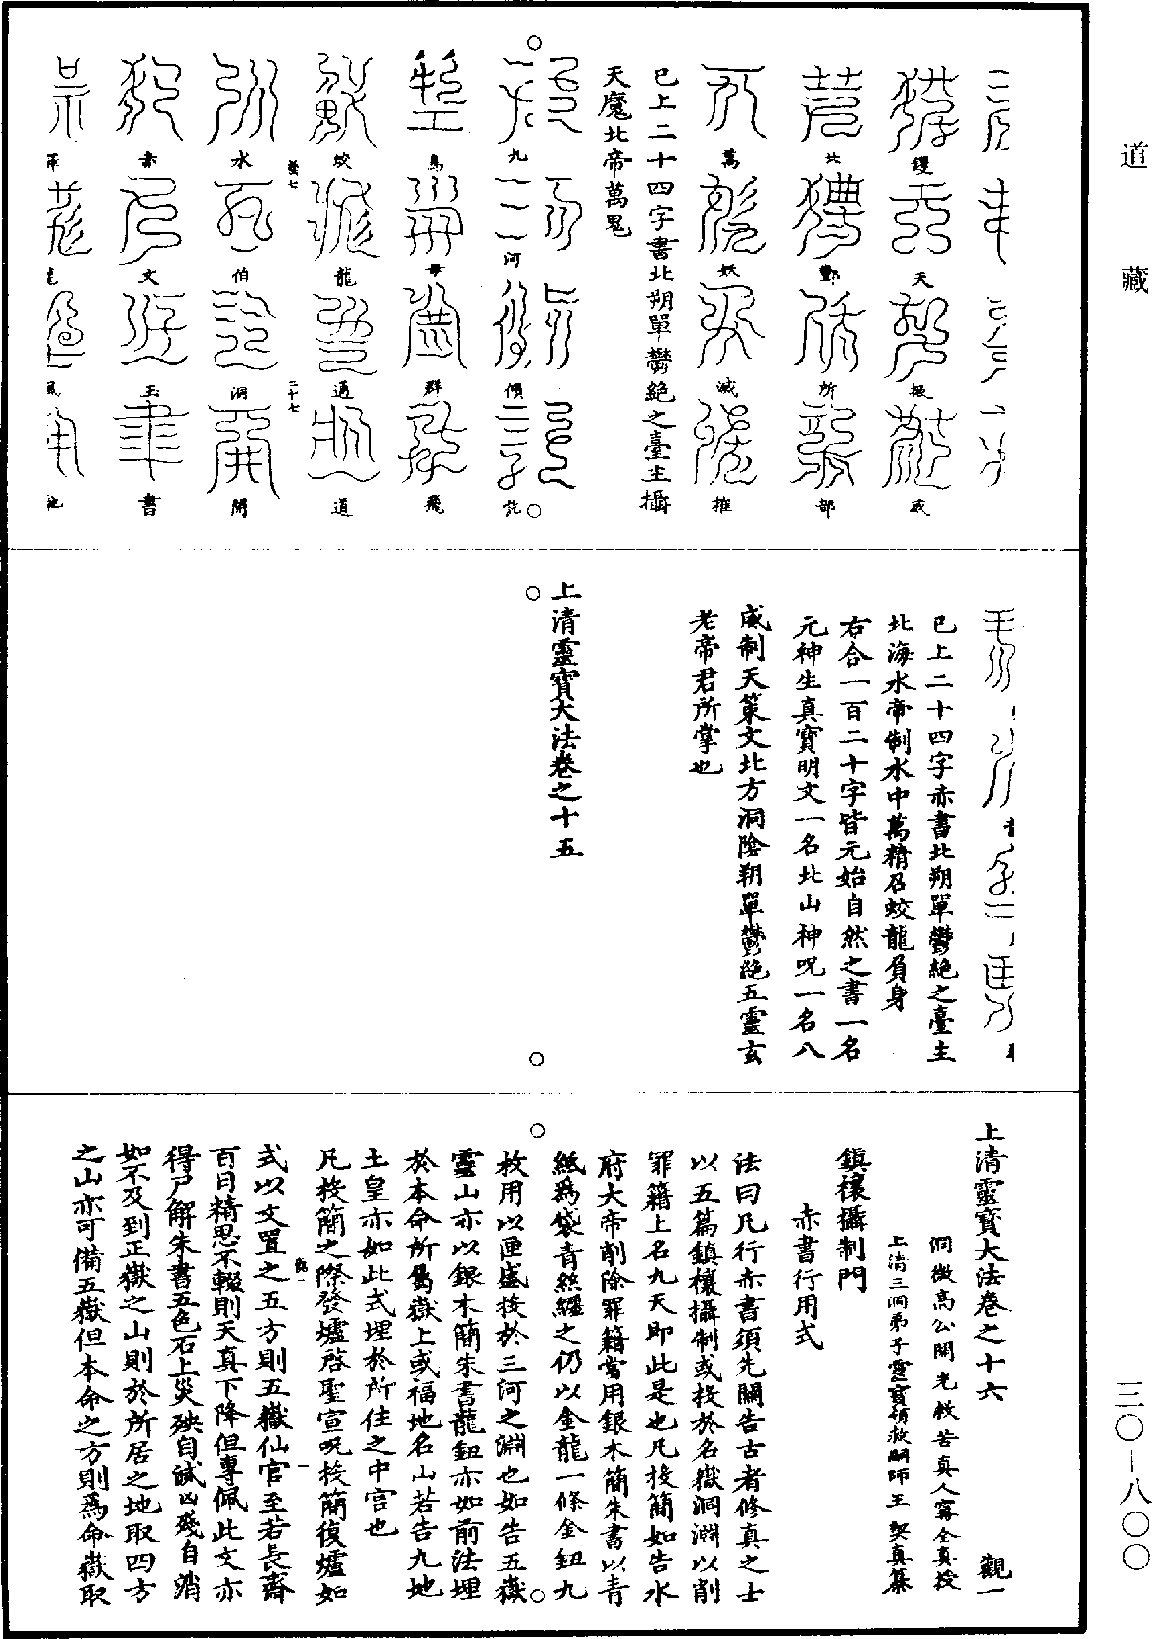 道藏
三〇—八〇〇
鑊天振威
北酆所部
萬妖滅摧
已上二十四字書北朔單鬱絕之臺主攝
天魔北帝萬鬼
九河傾訖
鳥母群飛
蛟龍通道
水伯洞開
赤文玉書
已上二十四字赤書北朔單鬱絕之臺主
北海水帝制水中萬精召蛟龍負身
右合一百二十字皆元始自然之書一名
元神生真寶明文一名北山神呪一名八
威制天策文北方洞陰朔單鬱絕五靈玄
老帝君所掌也
上清靈寶大法卷之十五
上清靈寶大法卷之十六 觀一
洞微高公開光救苦真人甯全真授
上清三洞弟子靈寶領教嗣師王契真纂
鎮禳攝制門
赤書行用式
法曰凡行赤書須先關告古者修真之士
以五篇鎮禳攝制或投於名嶽洞淵以削
罪籍上名九天即此是也凡投簡如告水
府大帝削除罪籍當用銀木簡朱書以青
紙爲袋青絲纏之仍以金龍一條金鈕九
枚用以匣盛投於三河之淵也如告五嶽
靈山亦以銀木簡朱書龍鈕亦如前法埋
於本命所屬嶽上或福地名山若告九地
土皇亦如此式埋於所住之中宮也
凡投簡之際發爐啓聖宣呪投簡復爐如
式以文置之五方則五嶽仙官至若長齋
百日精思不輟則天真下降但專佩此文亦
得尸解朱書五色石上災殃自滅凶殘自消
如不及到正嶽之山則於所居之地取四方
之山亦可備五嶽但本命之方則爲命嶽取